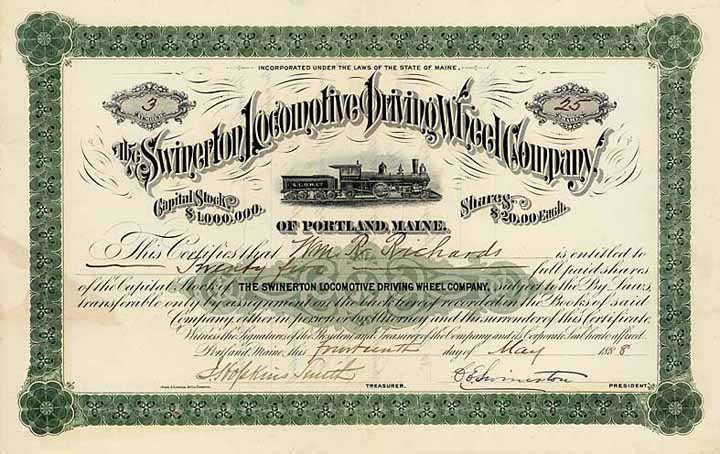 INCORPORATED UNDER THE LAWS OF THE STATE OF MAINE.
3
NUMBER
25
SHARES
The Swinerton Locomotive Driving Wheel Company,
Capital Stock
$1,000,000.
S.L.D.W.Co.
Shares
$20.00 Each.
OF PORTLAND, MAINE.
This Certifies that Wm R. Richards is entitled to
Twenty five full paid shares
of the Capital Stock of THE SWINERTON LOCOMOTIVE DRIVING WHEEL COMPANY, subject to the By Laws,
transferable only by assignment on the back hereof recorded in the Books of said
Company, either in person or by Attorney and the surrender of this Certificate.
Witness the Signatures of the President and Treasurer of the Company and its Corporate Seal hereto affixed.
Portland, Maine, this fourteenth day of May 1888
J. Hopkins Smith
TREASURER.
PRESIDENT.